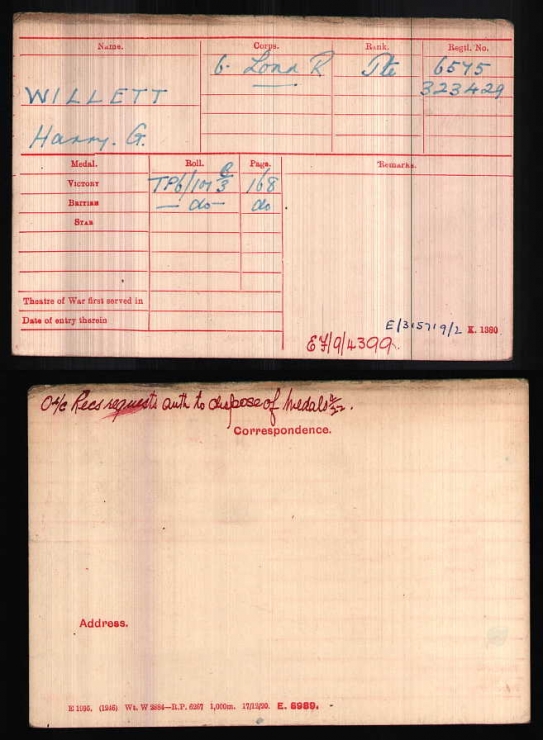 Name. Corps. Rank. Regtl. No.
6. Lond R Pte 6575
WILLETT 323429
Harry. G.
Medal. Roll. Page. Remarks.
VICTORY TP6/101 B3 168
BRITISH — do — do
STAR
Theatre of War first served in
Date of entry therein
E/315719/2 K. 1380
EF/9/4399.
O i/c Recs requests auth to dispose of Medals
Correspondence.
Address.
E 1095. (1946) Wt. W 2884—R.P. 6267 1,000m. 17/12/20. E. 6989.